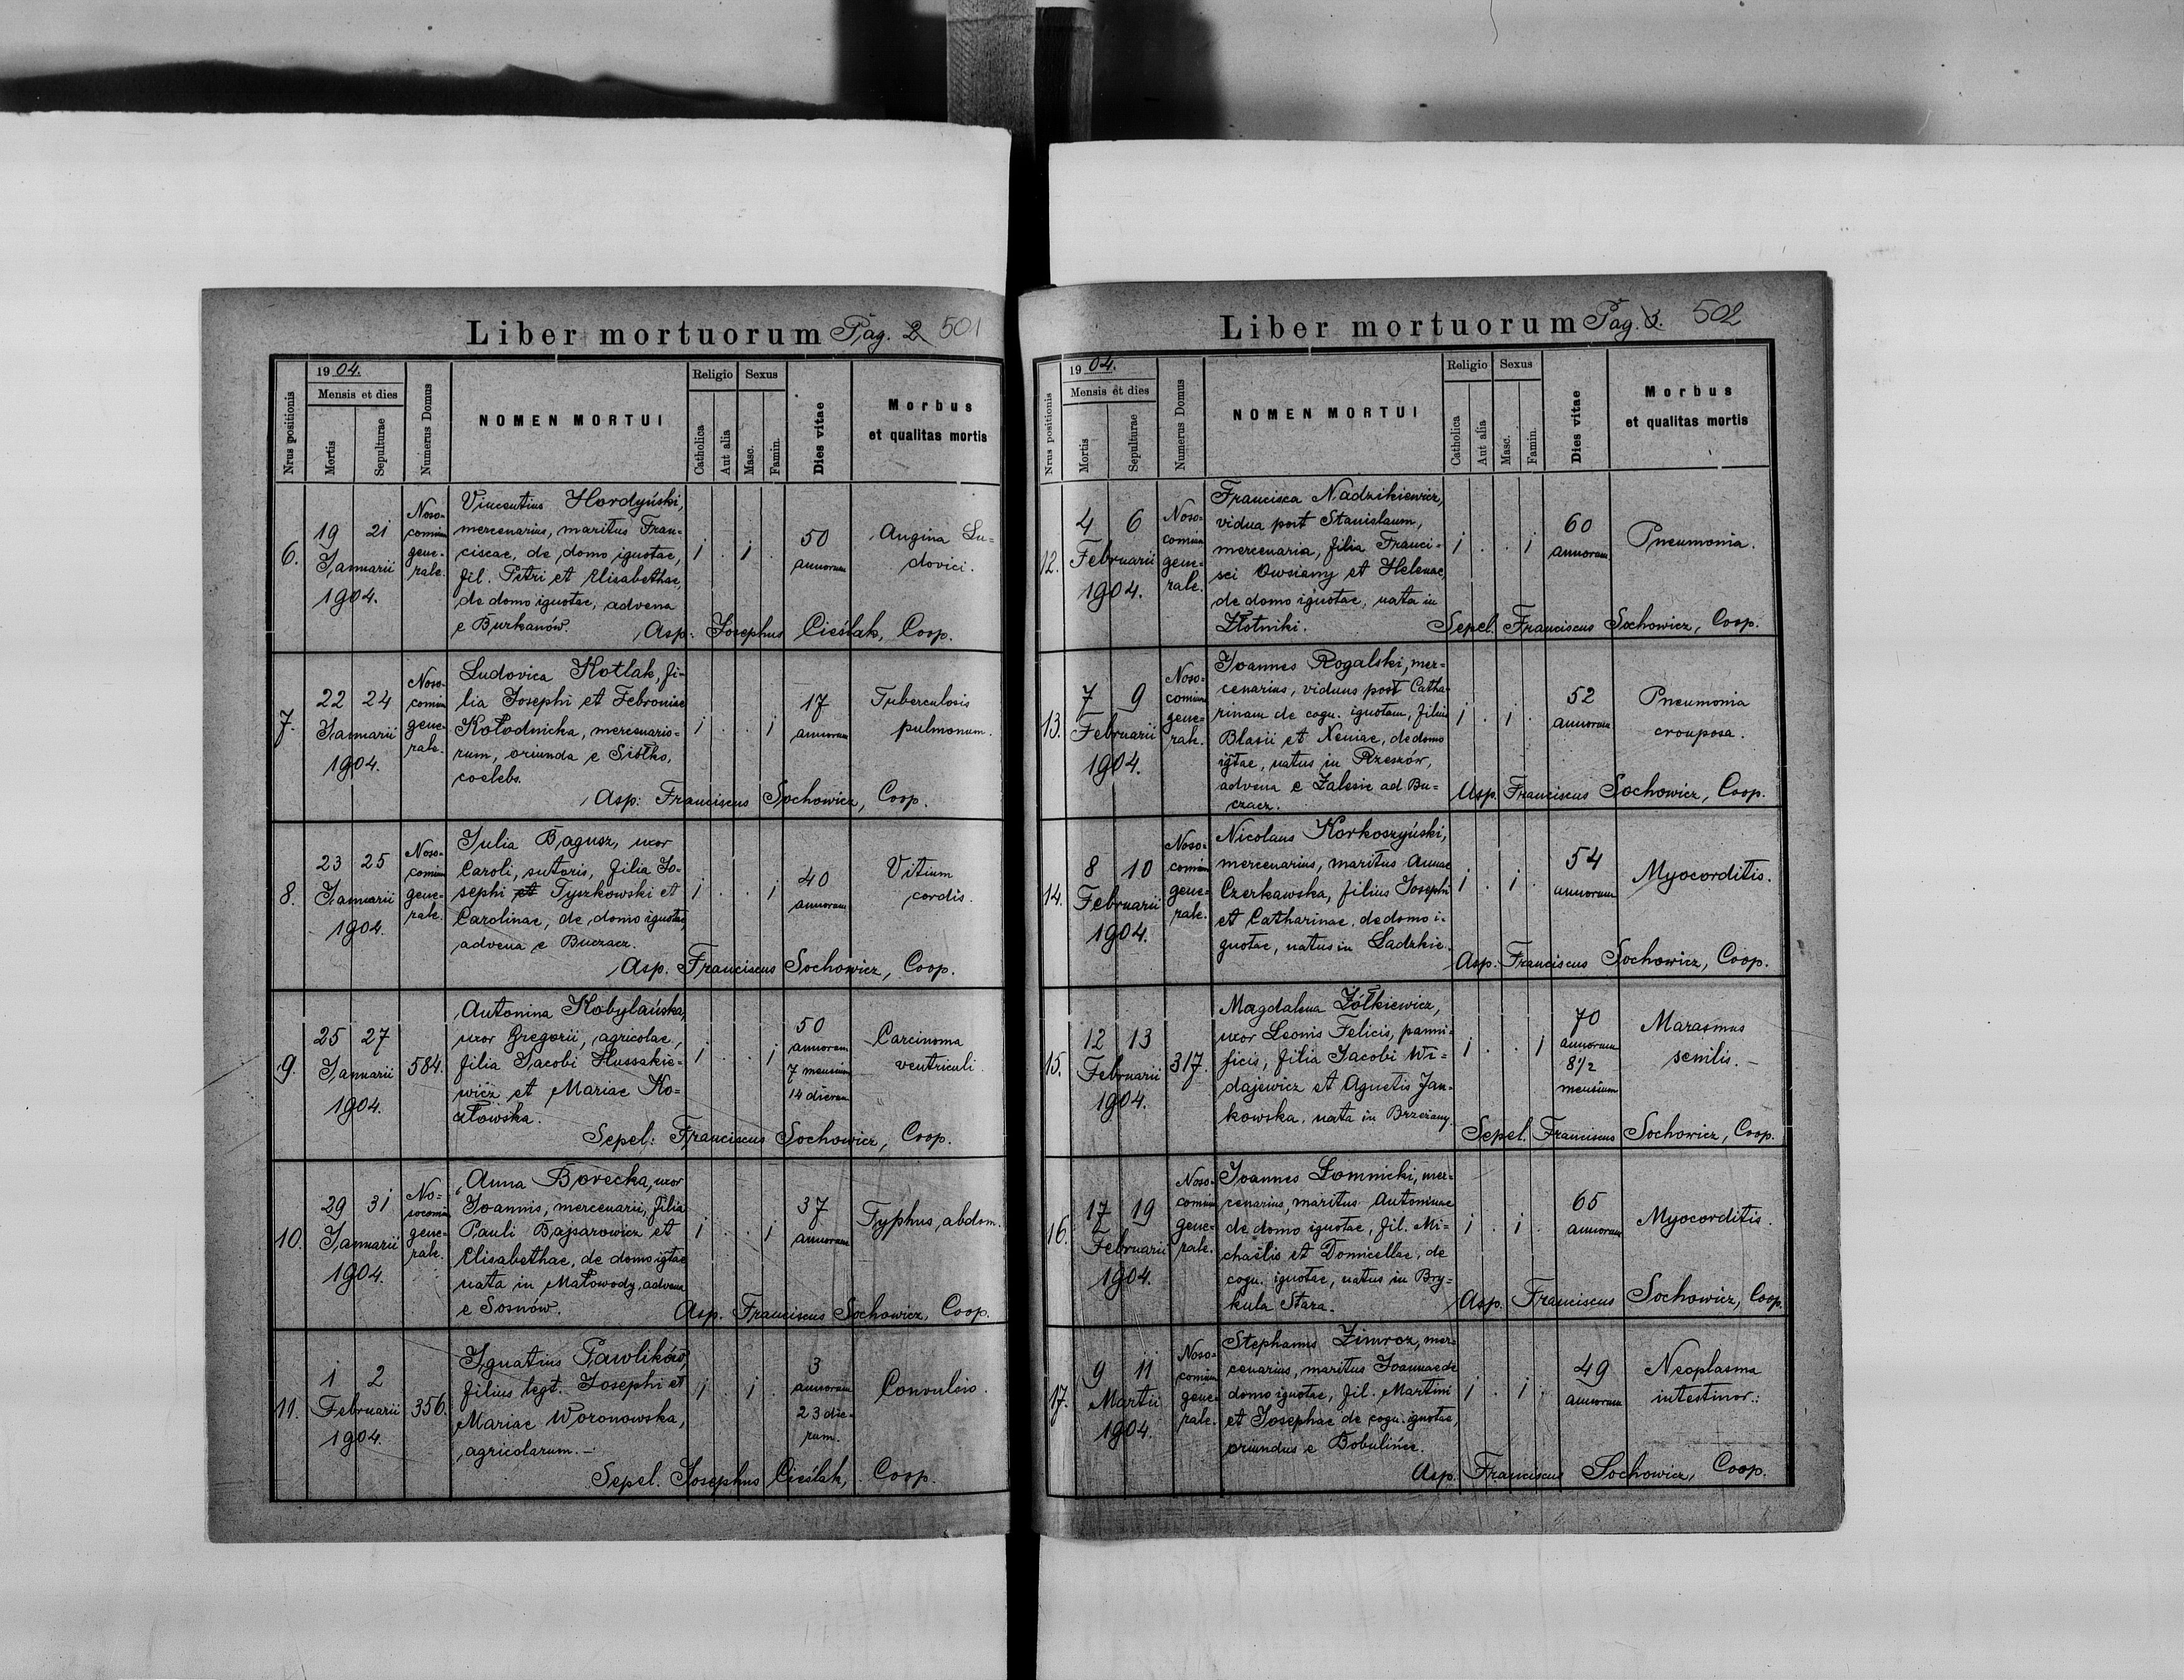 Liber mortuorum Pag. 2 501
Nrus positionis
1904.
Mensis et dies
Mortis
Sepulturae
Numerus Domus
NOMEN MORTUI
Religio
Catholica
Aut alia
Sexus
Masc.
Famin.
Dies vitae
Morbus
et qualitas mortis
6.
19 21
Januarii
1904.
Noso-
comium
gene-
rale.
Vincentius Hordyński,
mercenarius, maritus Fran-
ciscae, de domo ignotae,
fil. Petri et Elisabethae,
de domo ignotae, advena
e Burkanów.
1 . 1 .
50
annorum
Angina Lu-
dovici.
Asp. Josephus Cieślak, Coop.
7.
22 24
Januarii
1904.
Noso-
comium
gene-
rale.
Ludovica Kotlak, fi-
lia Josephi et Febroniae
Kołodnicka, mercenario-
rum, oriunda e Siółko,
coelebs.
1 . . 1
17
annorum
Tuberculosis
pulmonum.
Asp: Franciscus Sochowicz, Coop.
8.
23 25
Januarii
1904.
Noso-
comium
gene-
rale.
Julia Bagusz, uxor
Caroli, sutoris, filia Jo-
sephi et Tyszkowski et
Carolinae, de domo ignotae,
advena e Buczacz.
1 . . 1
40
annorum
Vitium
cordis.
Asp. Franciscus Sochowicz, Coop.
9.
25 27
Januarii
1904.
584.
Antonina Kobylańska,
uxor Gregorii, agricolae,
filia Jacobi Hussakie-
wicz et Mariae Ko-
złowska.
1 . . 1
50
annorum
7 mensium
14 dierum
Carcinoma
ventriculi.
Sepel: Franciscus Sochowicz, Coop.
10.
29 31
Januarii
1904.
No-
socomium
gene-
rale.
Anna Borecka, uxor
Joannis, mercenarii, filia
Pauli Bajsarowicz et
Elisabethae, de domo igtae
nata in Małowody, advena
e Sosnów.
1 . . 1
37
annorum
Typhus abdom.
Asp. Franciscus Sochowicz, Coop.
11.
1 2
Februarii
1904.
356.
Ignatius Pawlików,
filius legt. Josephi et
Mariae Woronowska,
agricolarum.-
1 . 1 .
3
annorum
23 die-
rum.
Convulsio.
Sepel. Josephus Cieślak, Coop.
Liber mortuorum Pag. 3. 502
Nrus positionis
1904.
Mensis et dies
Mortis
Sepulturae
Numerus Domus
NOMEN MORTUI
Religio
Catholica
Aut alia
Sexus
Masc.
Famin.
Dies vitae
Morbus
et qualitas mortis
12.
4 6
Februarii
1904.
Noso-
comium
gene-
rale.
Francisca Nadzikiewicz,
vidua post Stanislaum,
mercenaria, filia Franci-
sci Owsiany et Helenae,
de domo ignotae, nata in
Złotniki.
1 . . 1
60
annorum
Pneumonia.
Sepel. Franciscus Sochowicz, Coop.
13.
7 9
Februarii
1904.
Noso-
comium
gene-
rale.
Joannes Rogalski, mer-
cenarius, viduus post Catha-
rinam de cogn. ignotam, filius
Blasii et Neniae, de domo
igtae, natus in Rzeszów,
advena e Zalesie ad Bu-
czacz.
1 . 1 .
52
annorum
Pneumonia
crouposa.
Asp. Franciscus Sochowicz, Coop.
14.
8 10
Februarii
1904.
Noso-
comium
gene-
rale.
Nicolaus Korkoszyński,
mercenarius, maritus Annae
Czerkawska, filius Josephi
et Catharinae, de domo i-
gnotae, natus in Ladzkie.
1 . 1 .
54
annorum
Myocorditis.
Asp. Franciscus Sochowicz, Coop.
15.
12 13
Februarii
1904.
317.
Magdalena Żółkiewicz,
uxor Leonis Felicis, panni-
ficis, filia Jacobi Wi-
dajewicz et Agnetis Jan-
kowska, nata in Brzeżany.
1 . . 1
70
annorum
8 1/2
mensium
Marasmus
senilis.-
Sepel. Franciscus Sochowicz, Coop.
16.
17 19
Februarii
1904.
Noso-
comium
gene-
rale.
Joannes Łomnicki, mer-
cenarius, maritus Antoninae
de domo ignotae, fil. Mi-
chaëlis et Domicellae, de
cogn. ignotae, natus in Bry-
kula Stara.
1 . 1 .
65
annorum
Myocorditis.
Asp. Franciscus Sochowicz, Coop.
17.
9 11
Martii
1904.
Noso-
comium
gene-
rale.
Stephanus Zimroz, mer-
cenarius, maritus Joannae de
domo ignotae, fil. Martini
et Josephae de cogn. ignotae,
oriundus e Bobulińce.
1 . 1 .
49
annorum
Neoplasma
intestinor.:
Asp. Franciscus Sochowicz, Coop.